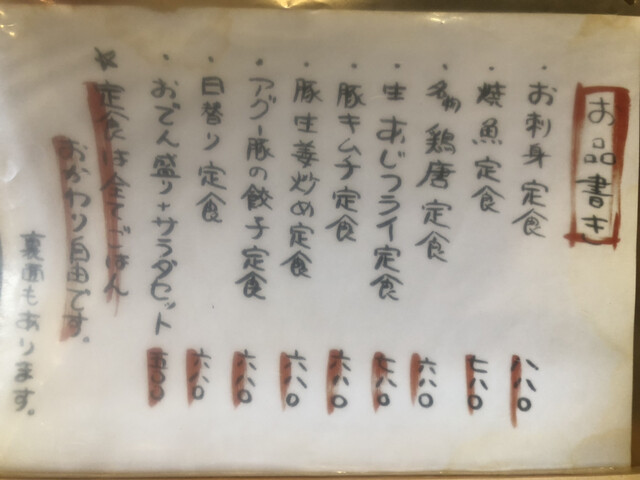 お品書き
・お刺身定食 八八〇
・焼魚定食 七八〇
・名物鶏唐定食 六八〇
・生あじフライ定食 七八〇
・豚キムチ定食 六八〇
・豚生姜炒め定食 六八〇
・アグー豚の餃子定食 六八〇
・日替り定食 六八〇
・おでん盛り+サラダセット 五〇〇
☆定食は全てごはん
おかわり自由です。
裏面もあります。